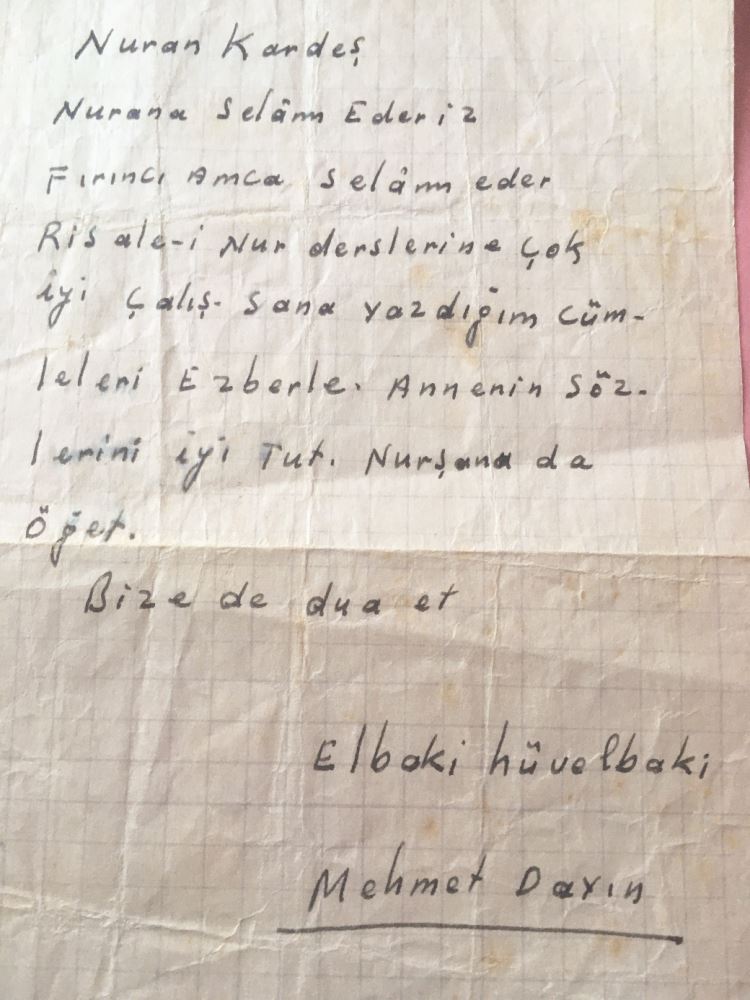 Nuran Kardeş
Nurana Selâm Ederiz
Fırıncı Amca Selâm eder
Risale-i Nur derslerine çok
iyi çalış. Sana Yazdığım cüm-
leleri Ezberle. Annenin Söz-
lerini iyi Tut. Nurşana da
Öğet.
Bize de dua et
Elbaki hüvelbaki
Mehmet Dayın